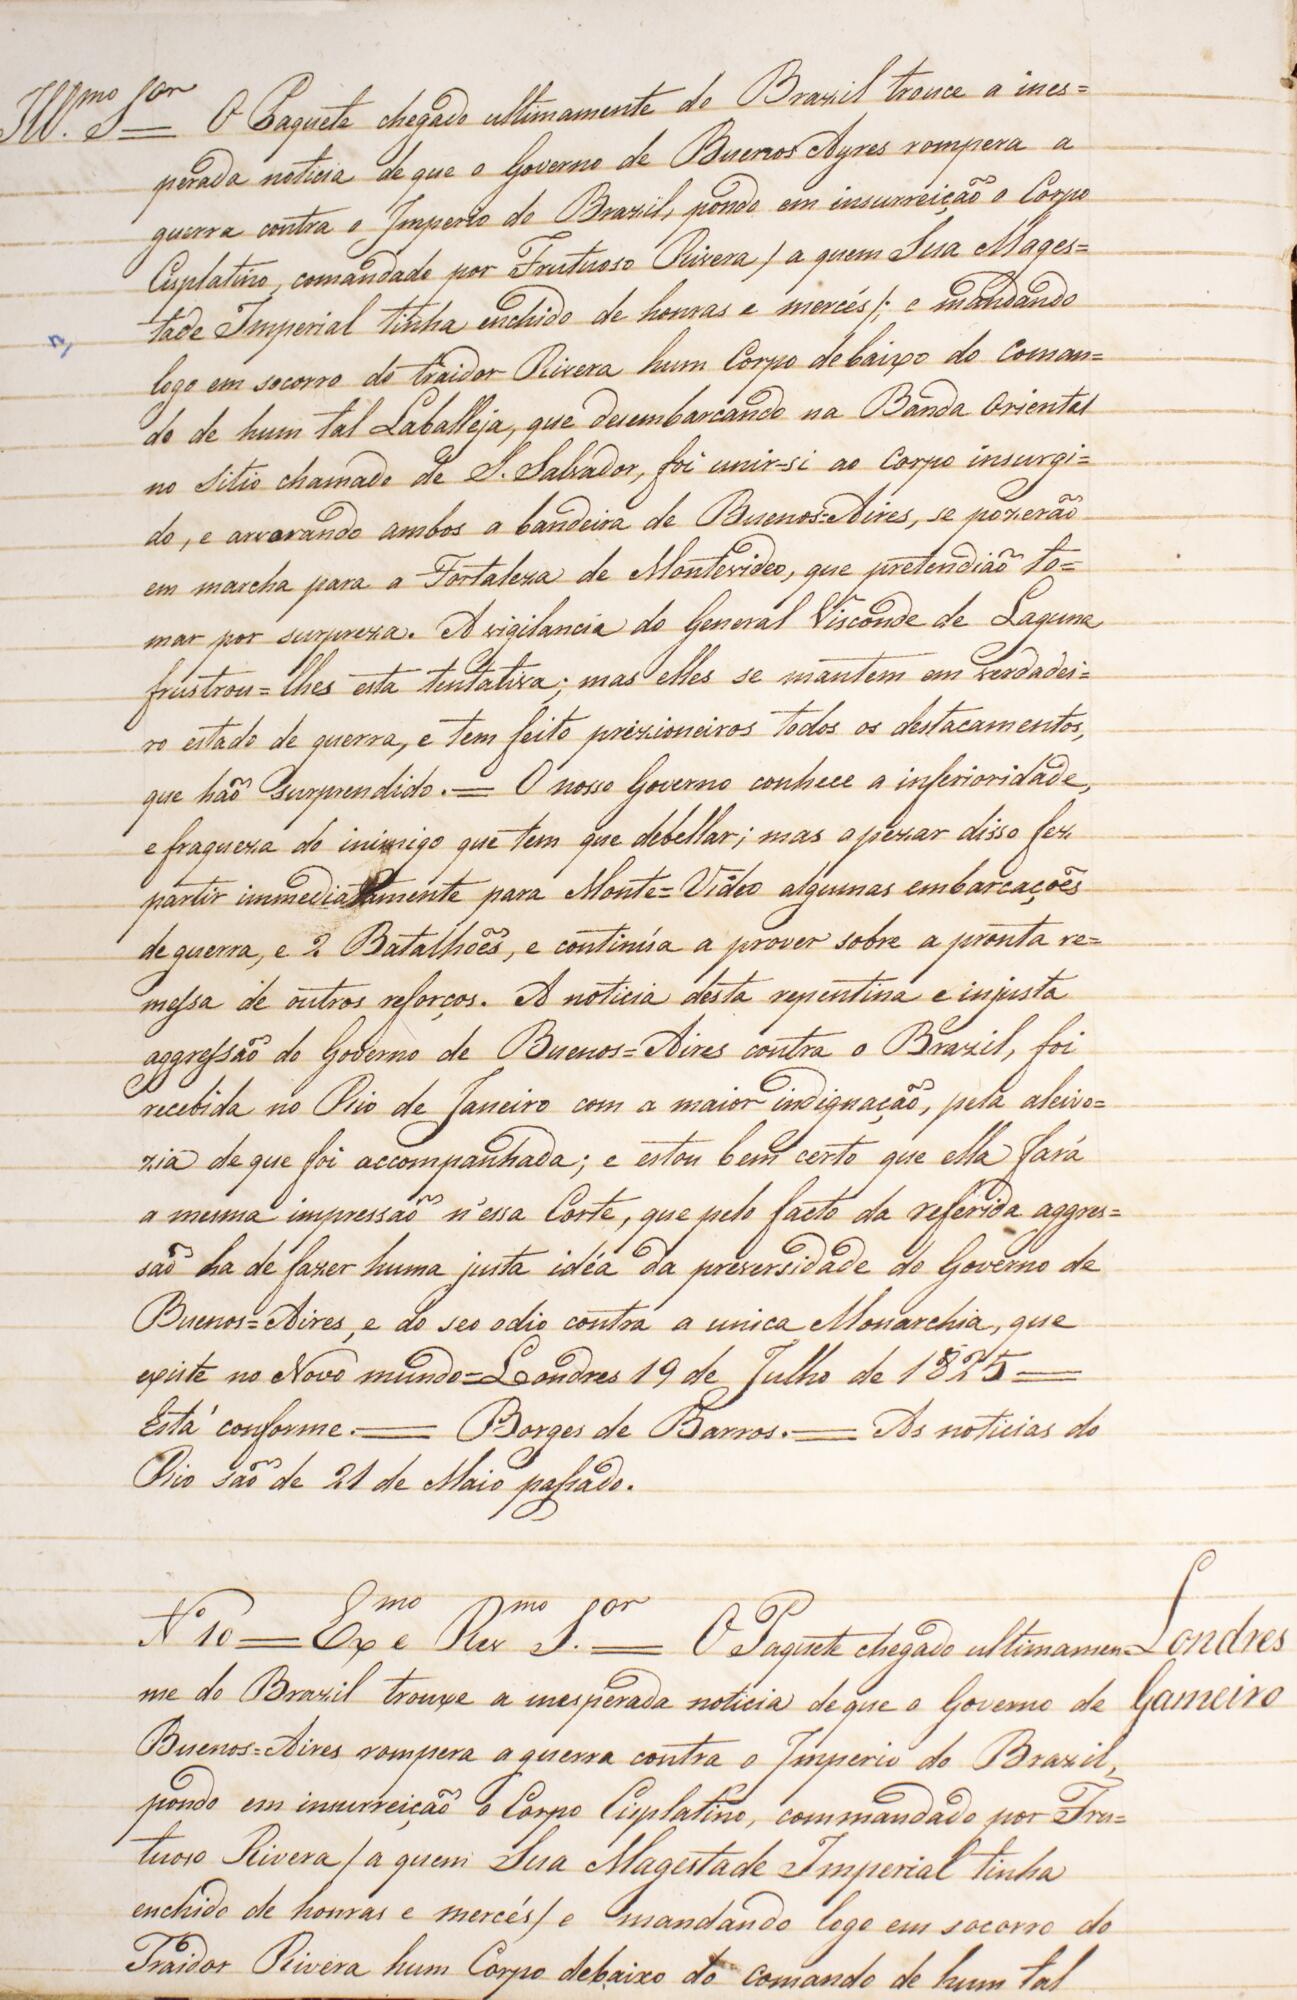 Ill.mo S.or = O Paquete chegado ultimamente do Brazil trouce a ines=
perada noticia de que o Governo de Buenos Ayres rompera a
guerra contra o Imperio do Brazil, pondo em insurreição o Corpo
Cisplatino, comandado por Frutuoso Rivera / a quem Sua Mages=
tade Imperial tinha enchido de honras e mercés /; e mandando
logo em socorro do traidor Rivera hum Corpo debaixo do coman=
do de hum tal Laballeja, que desembarcando na Banda Oriental
no sitio chamado de S. Salvador, foi unir-si ao Corpo insurgi=
do, e arvorando ambos a bandeira de Buenos=Aires, se pozerão
em marcha para a Fortaleza de Montevideo, que pretendião to=
mar por surpreza. A vigilancia do General Visconde de Laguna
frustrou=lhes esta tentativa; mas elles se mantem em verdadei=
ro estado de guerra, e tem feito prizioneiros todos os destacamentos,
que hão surprendido. = O nosso Governo conhece a inferioridade,
e fraqueza do inimigo que tem que debellar; mas apezar disso fez
partir immediatamente para Monte=Video algumas embarcações
de guerra, e 2 Batalhões, e continúa a prover sobre a pronta re=
messa de outros reforços. A noticia desta repentina e injusta
aggressão do Governo de Buenos=Aires contra o Brazil, foi
recebida no Rio de Janeiro com a maior indignação, pela aleivo=
zia de que foi accompanhada; e estou bem certo que ella fará
a mesma impressão n'essa Corte, que pelo facto da referida aggres=
são ha de fazer huma justa idéa da preversidade do Governo de
Buenos=Aires, e do seo odio contra a unica Monarchia, que
existe no Novo mundo=Londres 19 de Julho de 1825 =
Está conforme. = Borges de Barros. = As noticias do
Rio são de 21 de Maio passado.
N.º 10 = Ex.mo e Rev.mo S.or = O Paquete chegado ultimamen=
me do Brazil trouxe a inesperada noticia de que o Governo de
Buenos=Aires rompera a guerra contra o Imperio do Brazil,
pondo em insurreição o Corpo Cisplatino, commandado por Fru=
tuoso Rivera / a quem Sua Magestade Imperial tinha
enchido de honras e mercés / e mandando logo em socorro do
Traidor Rivera hum Corpo debaixo do comando de hum tal
Londres
Gameiro